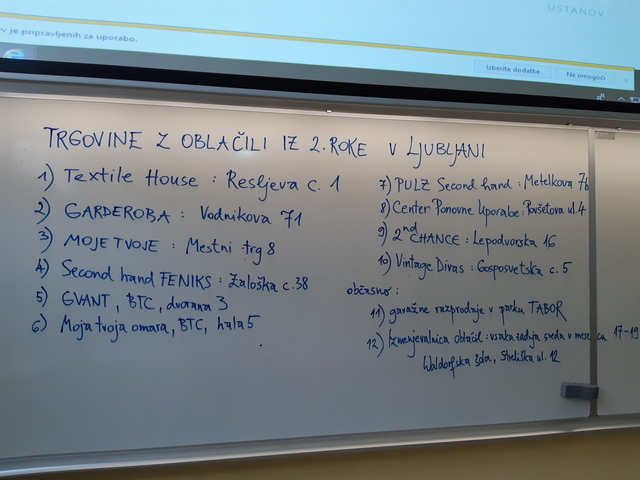 USTANOV
v je pripravljenih za uporabo.
Izberite dodatke
Ne omogoči
TRGOVINE Z OBLAČILI IZ 2. ROKE V LJUBLJANI
1) Textile House : Resljeva c. 1
2) GARDEROBA : Vodnikova 71
3) MOJE TVOJE : Mestni trg 8
4) Second hand FENIKS : Zaloška c. 38
5) GVANT, BTC, dvorana 3
6) Moja tvoja omara, BTC, hala 5
7) PULZ Second hand : Metelkova 7b
8) Center Ponovne Uporabe : Povšetova ul. 4
9) 2nd CHANCE : Lepodvorska 16
10) Vintage Divas : Gosposvetska c. 5
občasno :
11) garažne razprodaje v parku TABOR
12) Izmenjevalnica oblačil : vsaka zadnja sreda v mesecu 17-19
Waldorfska šola, Streliška ul. 12